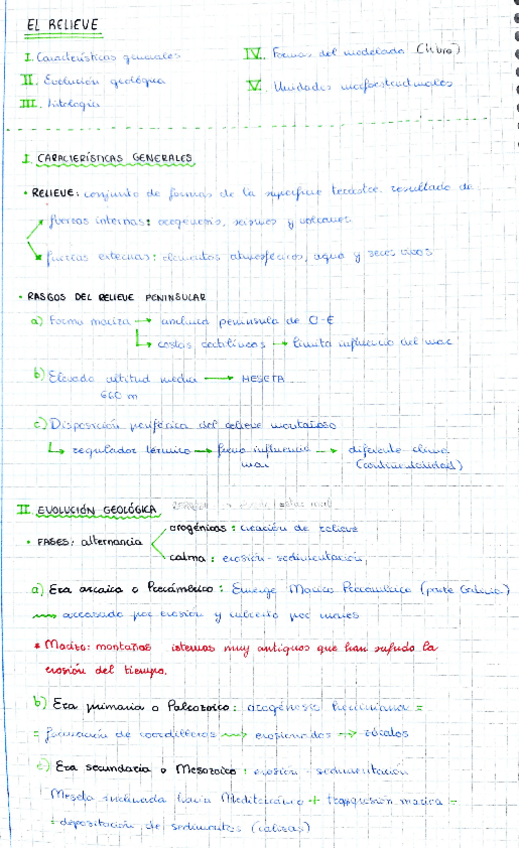 EL RELIEVE
I. Características generales
II. Evolución geológica
III. Litología
IV. Formas del modelado (libro)
V. Unidades morfoestructurales
I. CARACTERÍSTICAS GENERALES
• RELIEVE: conjunto de formas de la superficie terrestre. resultado de
fuerzas internas: orogénesis, seísmos y volcanes
fuerzas externas: elementos atmosféricos, agua y seres vivos
• RASGOS DEL RELIEVE PENINSULAR
a) Forma maciza → anchura península de O-E
↳ costas rectilíneas → limita influencia del mar
b) Elevada altitud media → MESETA
660 m
c) Disposición periférica del relieve montañoso
↳ regulador térmico → frena influencia → diferente clima
mar (continentalidad)
II. EVOLUCIÓN GEOLÓGICA
• FASES: alternancia
orogénicas: creación de relieve
calma: erosión - sedimentación
a) Era arcaica o Precámbrico: Emerge Macizo Precámbrico (parte Galicia)
arrasado por erosión y cubierto por mares
* Macizo: montañas muy antiguos que han sufrido la
erosión del tiempo.
b) Era primaria o Paleozoico: orogénesis herciniana =
= formación de cordilleras → erosionados → zócalos
c) Era secundaria o Mesozoico: erosión - sedimentación
Meseta inclinada hacia Mediterráneo + transgresión marina =
= depositación de sedimentos (calizas)